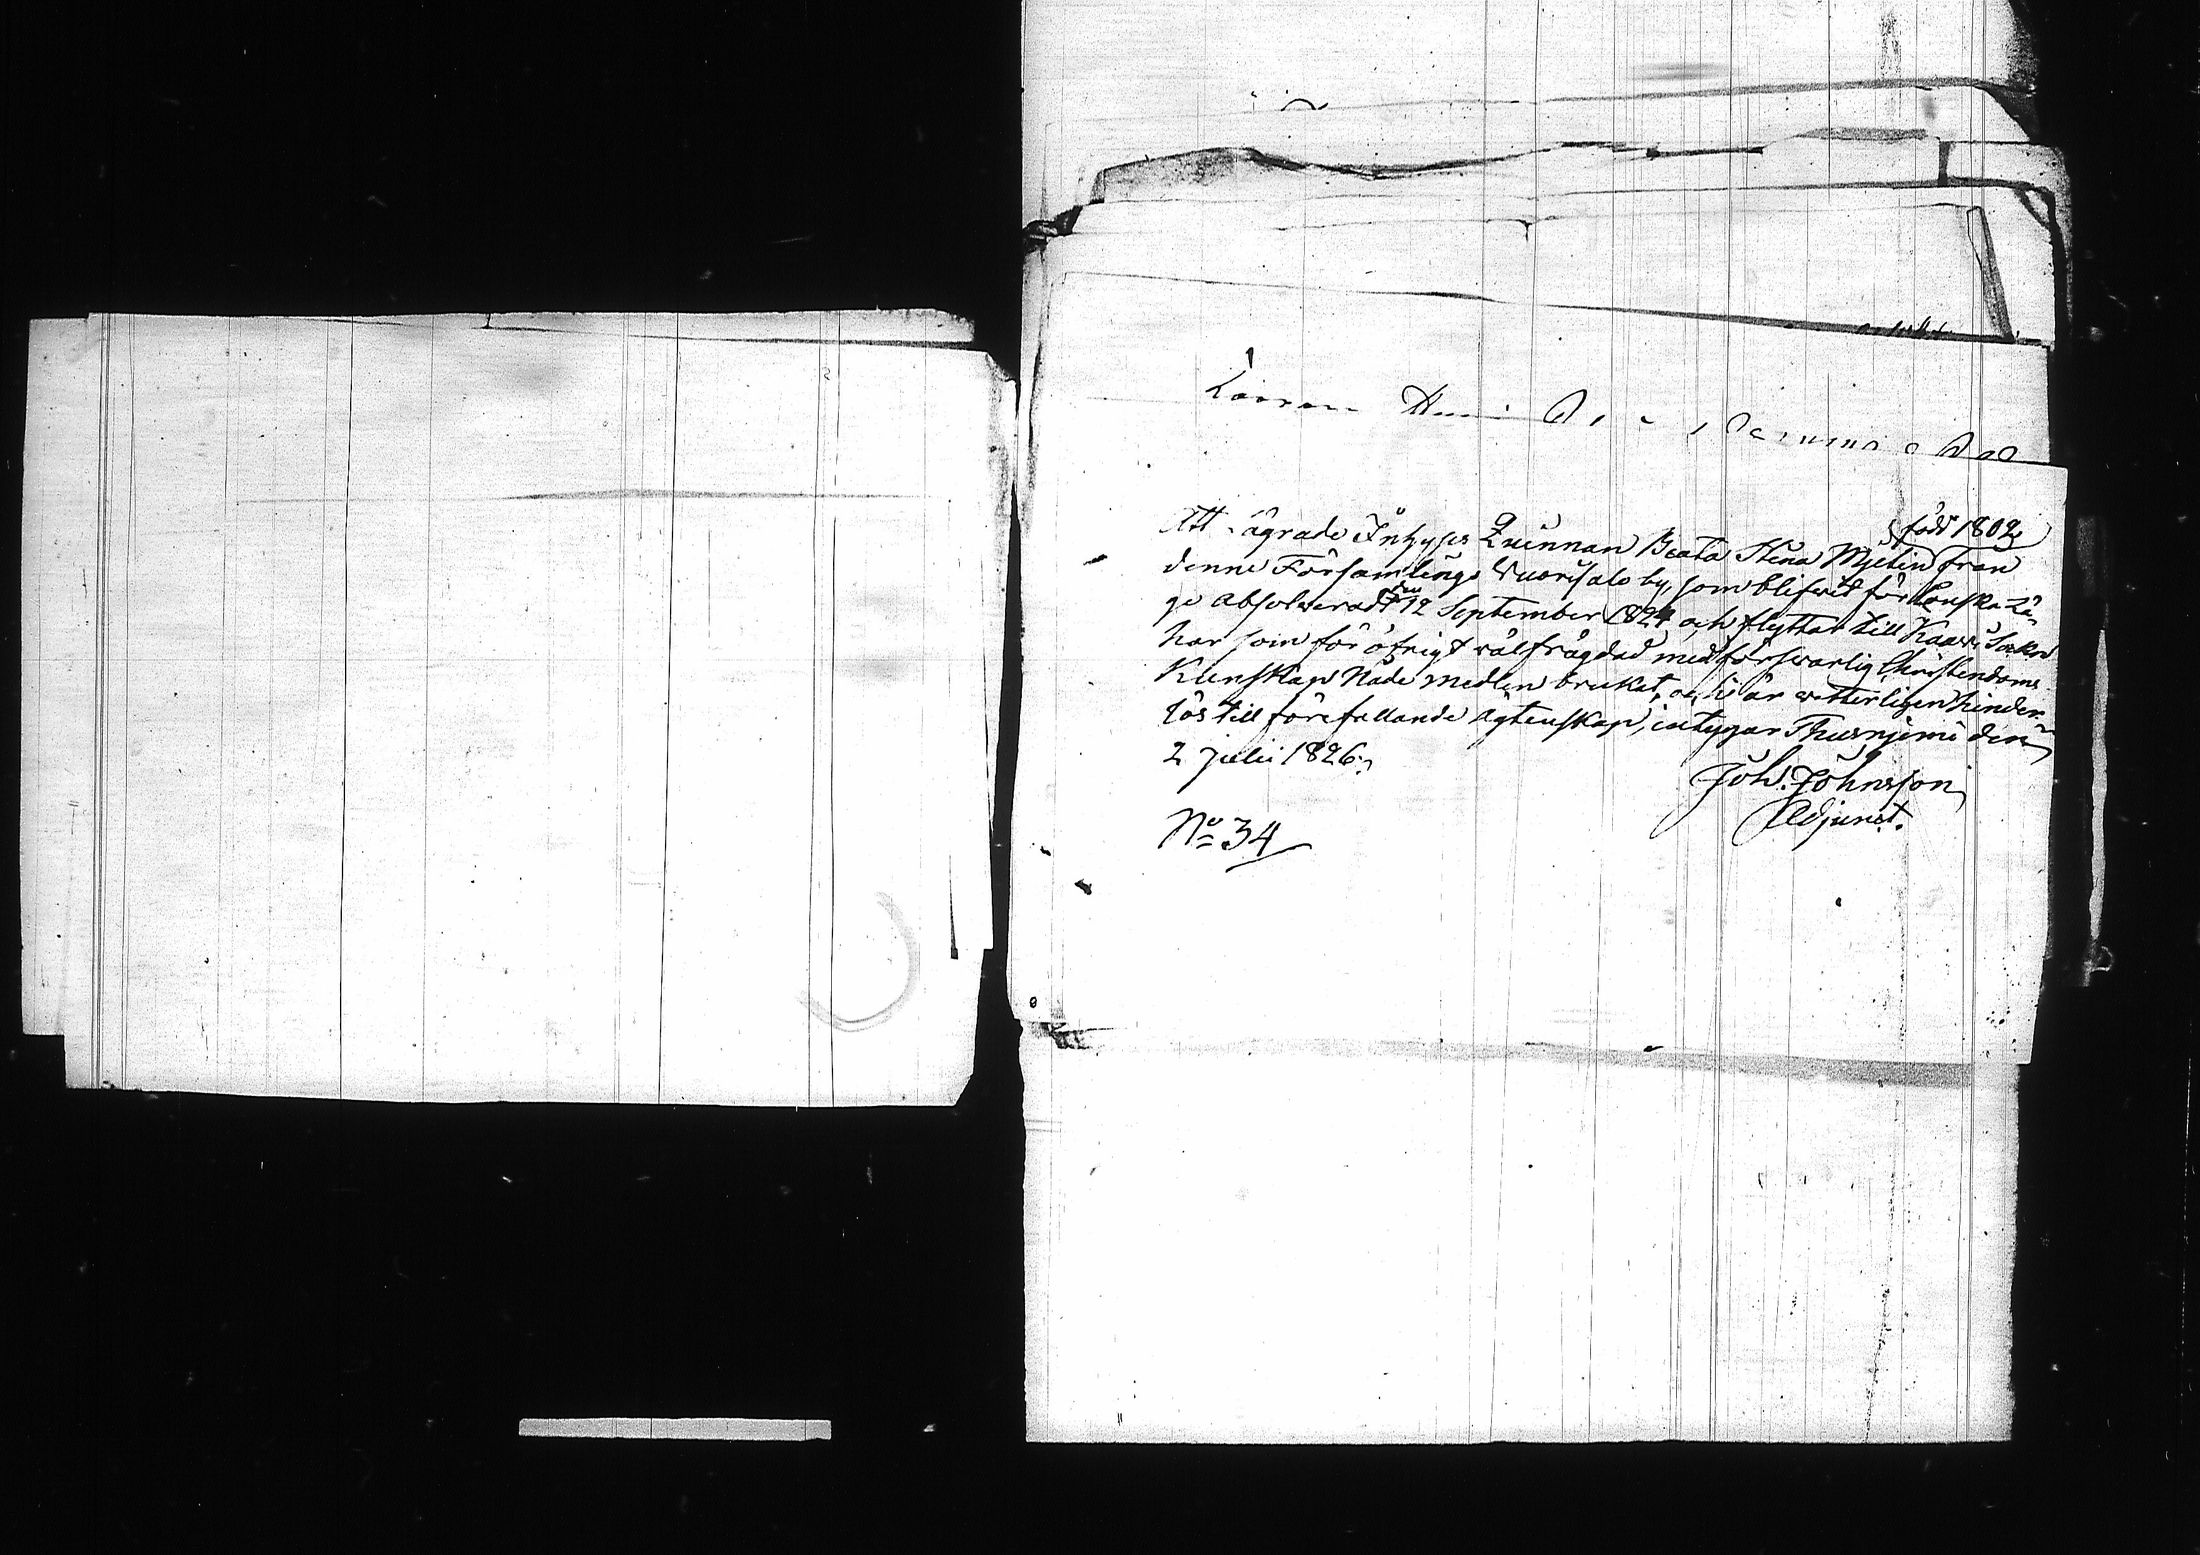 född 1802
Att ägrade Inhyses Quinnan Beata Stina Mjelin från
denne Församlings Wuorisalo by, som blifwit för lönska Lä-
ge absolverad den 12 September 1824 och flyttar till Kaavi Sockn
har som för öfrigt wälfrägdad med försvarlig Christendoms
Kunskap Nådemedlen brukat, och är wetterligen hinder-
lös till förefallande ägtenskap, intygar Thusnjemi den
2 Julii 1826.
Joh. Johnsson
Adjunct.
No 34